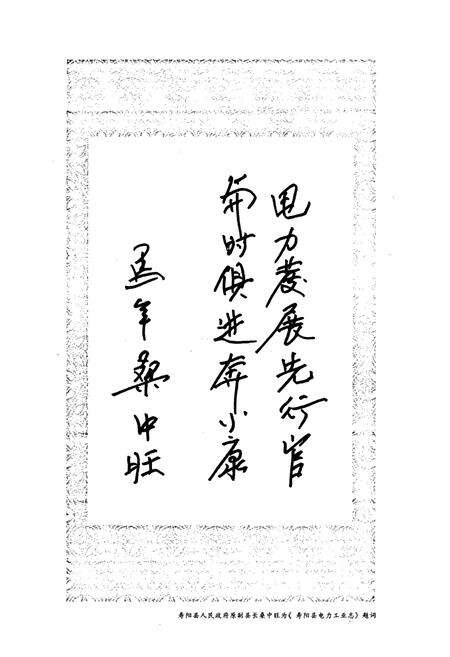 电力發展先行官
與时俱进奔小康
馬年桑中旺
寿阳县人民政府原副县长桑中旺为《寿阳县电力工业志》题词